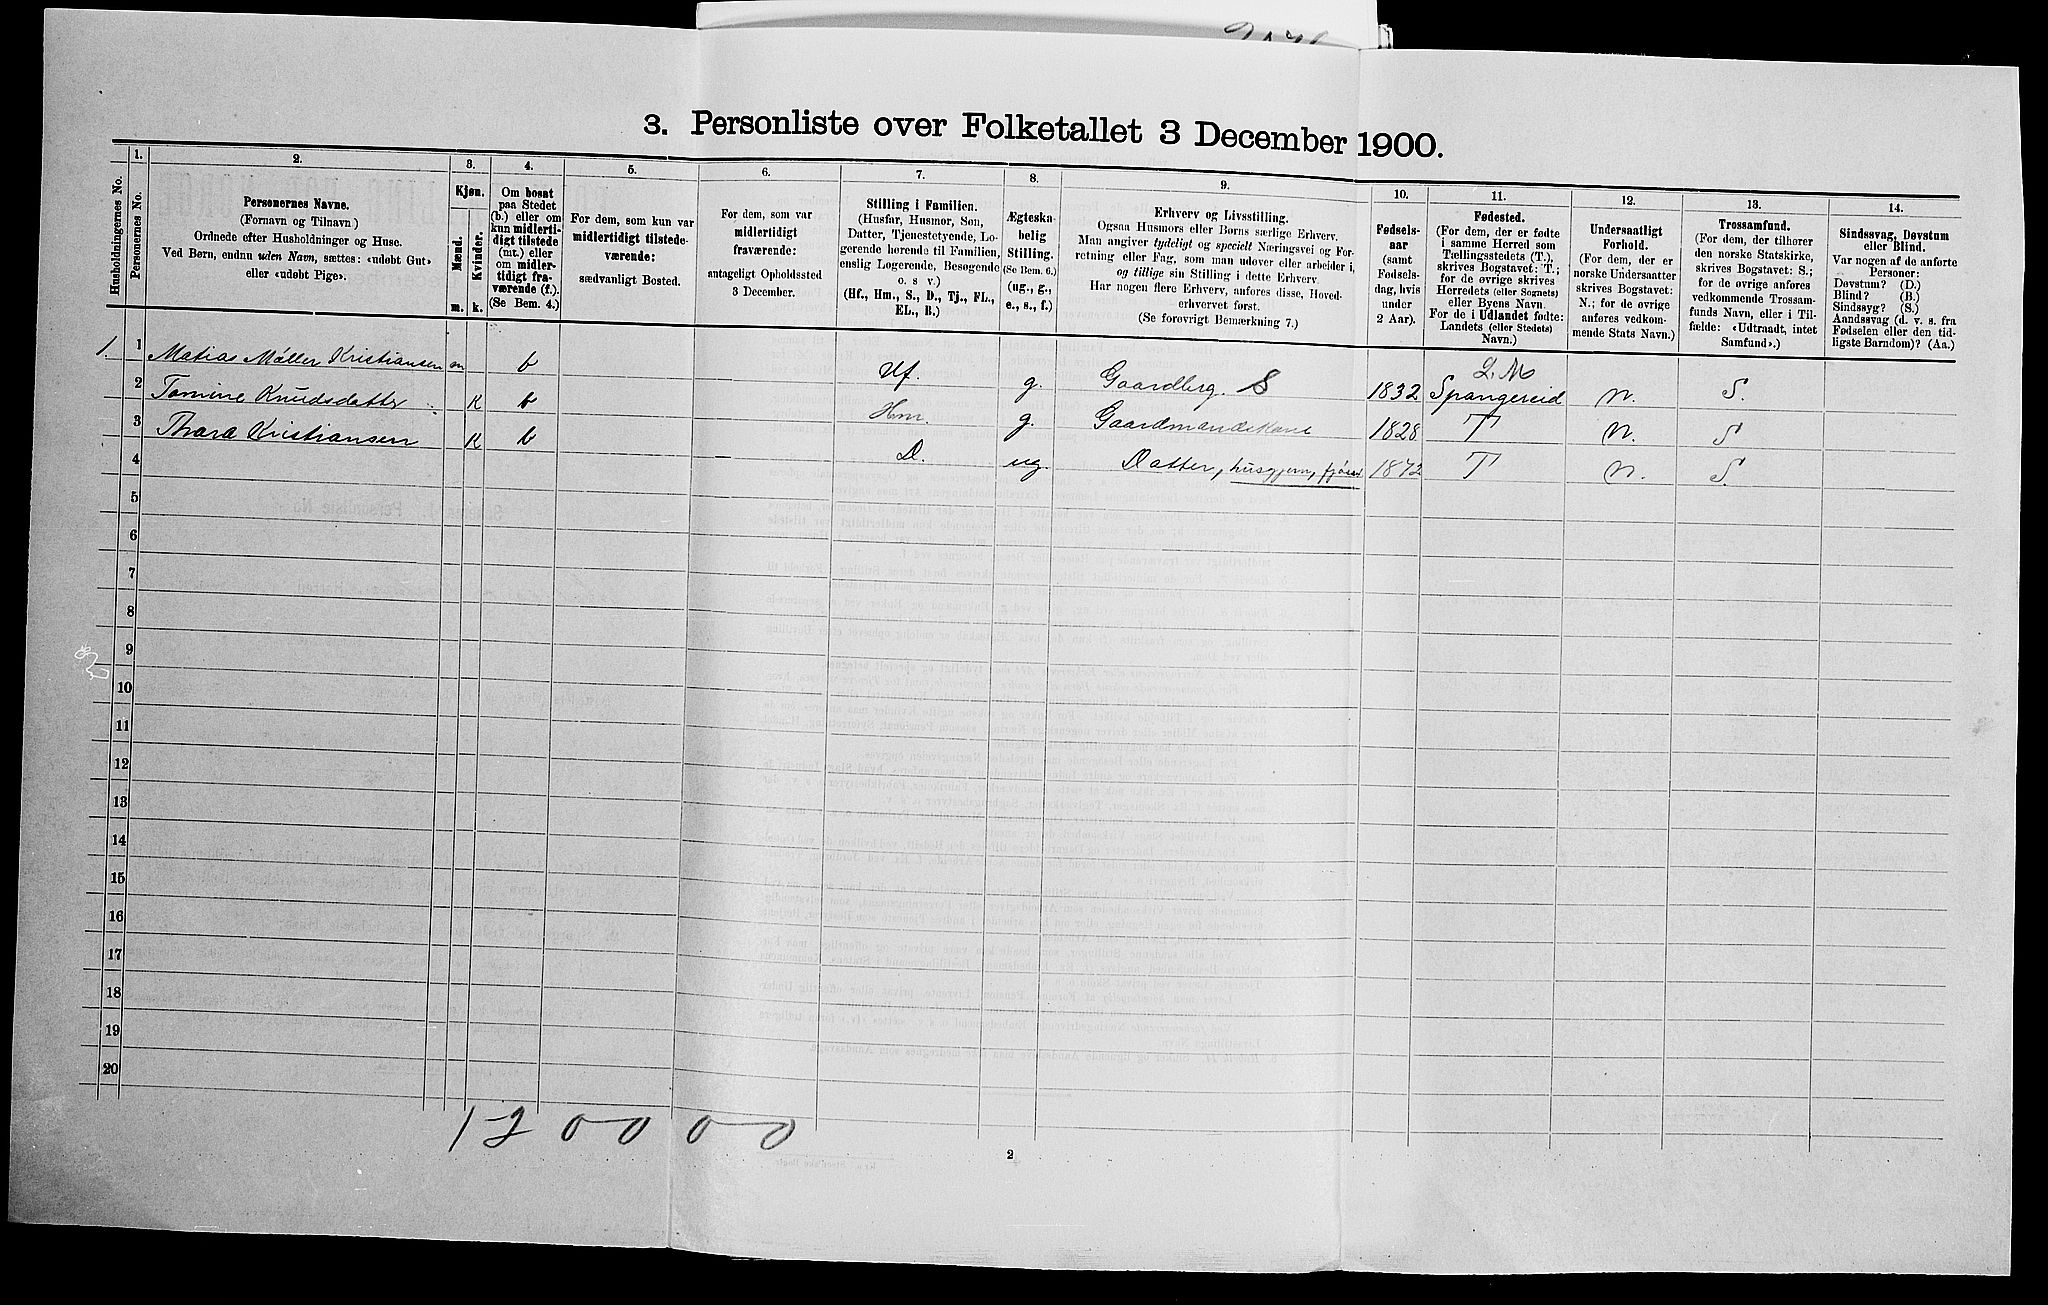 3. Personliste over Folketallet 3 December 1900.
Husholdningernes No.
1.
Personernes No.
2.
Personernes Navne.
(Fornavn og Tilnavn)
Ordnede efter Husholdninger og Huse.
Ved Børn, endnu uden Navn, sættes: «udøbt Gut»
eller «udøbt Pige».
3.
Kjøn.
Mænd.
Kvinder.
m.
k.
4.
Om bosat
paa Stedet
(b.) eller om
kun midlerti-
digt tilstede
(mt.) eller
om midler-
tidigt fra-
værende (f.).
(Se Bem. 4.)
5.
For dem, som kun var
midlertidigt tilstede-
værende:
sædvanligt Bosted.
6.
For dem, som var
midlertidigt
fraværende:
antageligt Opholdssted
3 December.
7.
Stilling i Familien.
(Husfar, Husmor, Søn,
Datter, Tjenestetyende, Lo-
gerende hørende til Familien,
enslig Logerende, Besøgende
o. s v.)
(Hf., Hm., S., D., Tj., FL.,
EL., B.)
8.
Ægteska-
belig
Stilling.
(Se Bem. 6.)
(ug., g.,
e., s., f.)
9.
Erhverv og Livsstilling.
Ogsaa Husmors eller Børns særlige Erhverv.
Man angiver tydeligt og specielt Næringsvei og For-
retning eller Fag, som man udøver eller arbeider i,
og tillige sin Stilling i dette Erhverv.
Har nogen flere Erhverv, anføres disse, Hoved-
erhvervet først.
(Se forøvrigt Bemærkning 7.)
10.
Fødsels-
aar
(samt
Fødsels-
dag, hvis
under
2 Aar).
11.
Fødested.
(For dem, der er fødte
i samme Herred som
Tællingsstedets (T.),
skrives Bogstavet: T.;
for de øvrige skrives
Herredets (eller Sognets)
eller Byens Navn.
For de i Udlandet fødte:
Landets (eller Stedets)
Navn.)
12.
Undersaatligt
Forhold.
(For dem, der er
norske Undersaatter
skrives Bogstavet:
N.; for de øvrige
anføres vedkom-
mende Stats Navn.)
13.
Trossamfund.
(For dem, der tilhører
den norske Statskirke,
skrives Bogstavet: S.;
for de øvrige anføres
vedkommende Trossam-
funds Navn, eller i Til-
fælde: «Udtraadt, intet
Samfund».)
14.
Sindssvag, Døvstum
eller Blind.
Var nogen af de anførte
Personer:
Døvstum? (D.)
Blind? (B.)
Sindssyg? (S.)
Aandssvag (d. v. s. fra
Fødselen eller den tid-
ligste Barndom)? (Aa.)
1. 1 Matias Møller Kristiansen m b Hf. g. Gaardbrg. S 1832 L. M Spangereid N. S.
2 Tomine Knudsdatter K b Hm. g. Gaardmandskone 1828 T N. S
3 Thara Kristiansen K b D. ug. Datter, husgjern, fjøsst 1872 T N. S.
4
5
6
7
8
9
10
11
12
13
14
15
16
17
18
19
20
1 2 0 0 0 0
2